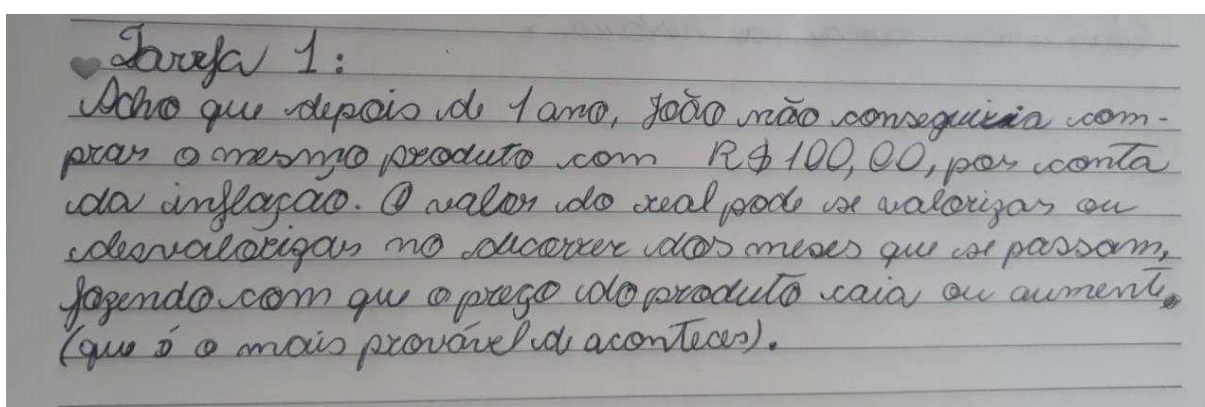 Tarefa 1:
Acho que depois de 1 ano, João não conseguiria com-
prar o mesmo produto com R$ 100,00, por conta
da inflação. O valor do real pode se valorizar ou
desvalorizar no decorrer dos meses que se passam,
fazendo com que o preço do produto caia ou aumente
(que é o mais provável de acontecer).